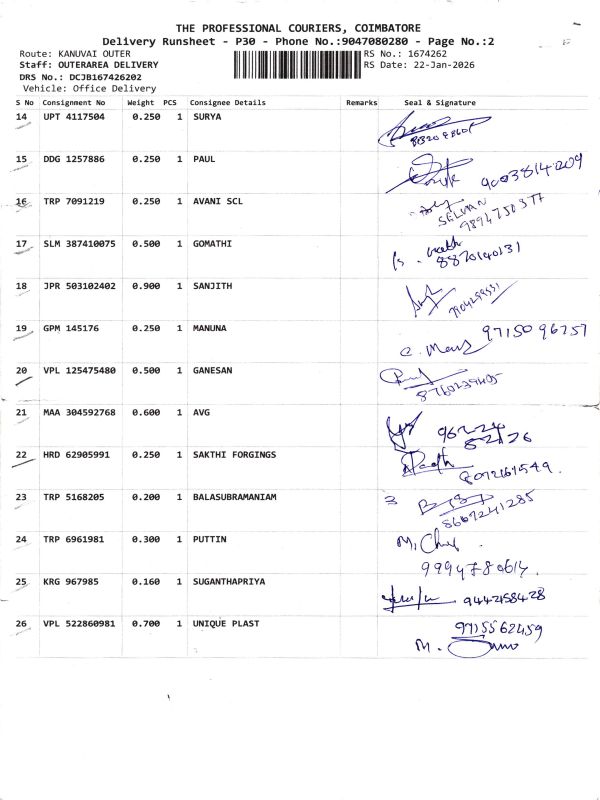 THE PROFESSIONAL COURIERS, COIMBATORE
Delivery Runsheet - P30 - Phone No.:9047080280 - Page No.:2
Route: KANUVAI OUTER RS No.: 1674262
Staff: OUTERAREA DELIVERY RS Date: 22-Jan-2026
DRS No.: DCJB167426202
Vehicle: Office Delivery
S No Consignment No Weight PCS Consignee Details Remarks Seal & Signature
14 UPT 4117504 0.250 1 SURYA
15 DDG 1257886 0.250 1 PAUL
9003814209
16 TRP 7091219 0.250 1 AVANI SCL
SELVAN
9894750377
17 SLM 387410075 0.500 1 GOMATHI
8870140131
18 JPR 503102402 0.900 1 SANJITH
19 GPM 145176 0.250 1 MANUNA
9715096757
20 VPL 125475480 0.500 1 GANESAN
8760239405
21 MAA 304592768 0.600 1 AVG
22 HRD 62905991 0.250 1 SAKTHI FORGINGS
8072161549.
23 TRP 5168205 0.200 1 BALASUBRAMANIAM
8667241285
24 TRP 6961981 0.300 1 PUTTIN
9994780614.
25 KRG 967985 0.160 1 SUGANTHAPRIYA
9442158428
26 VPL 522860981 0.700 1 UNIQUE PLAST
9715562459